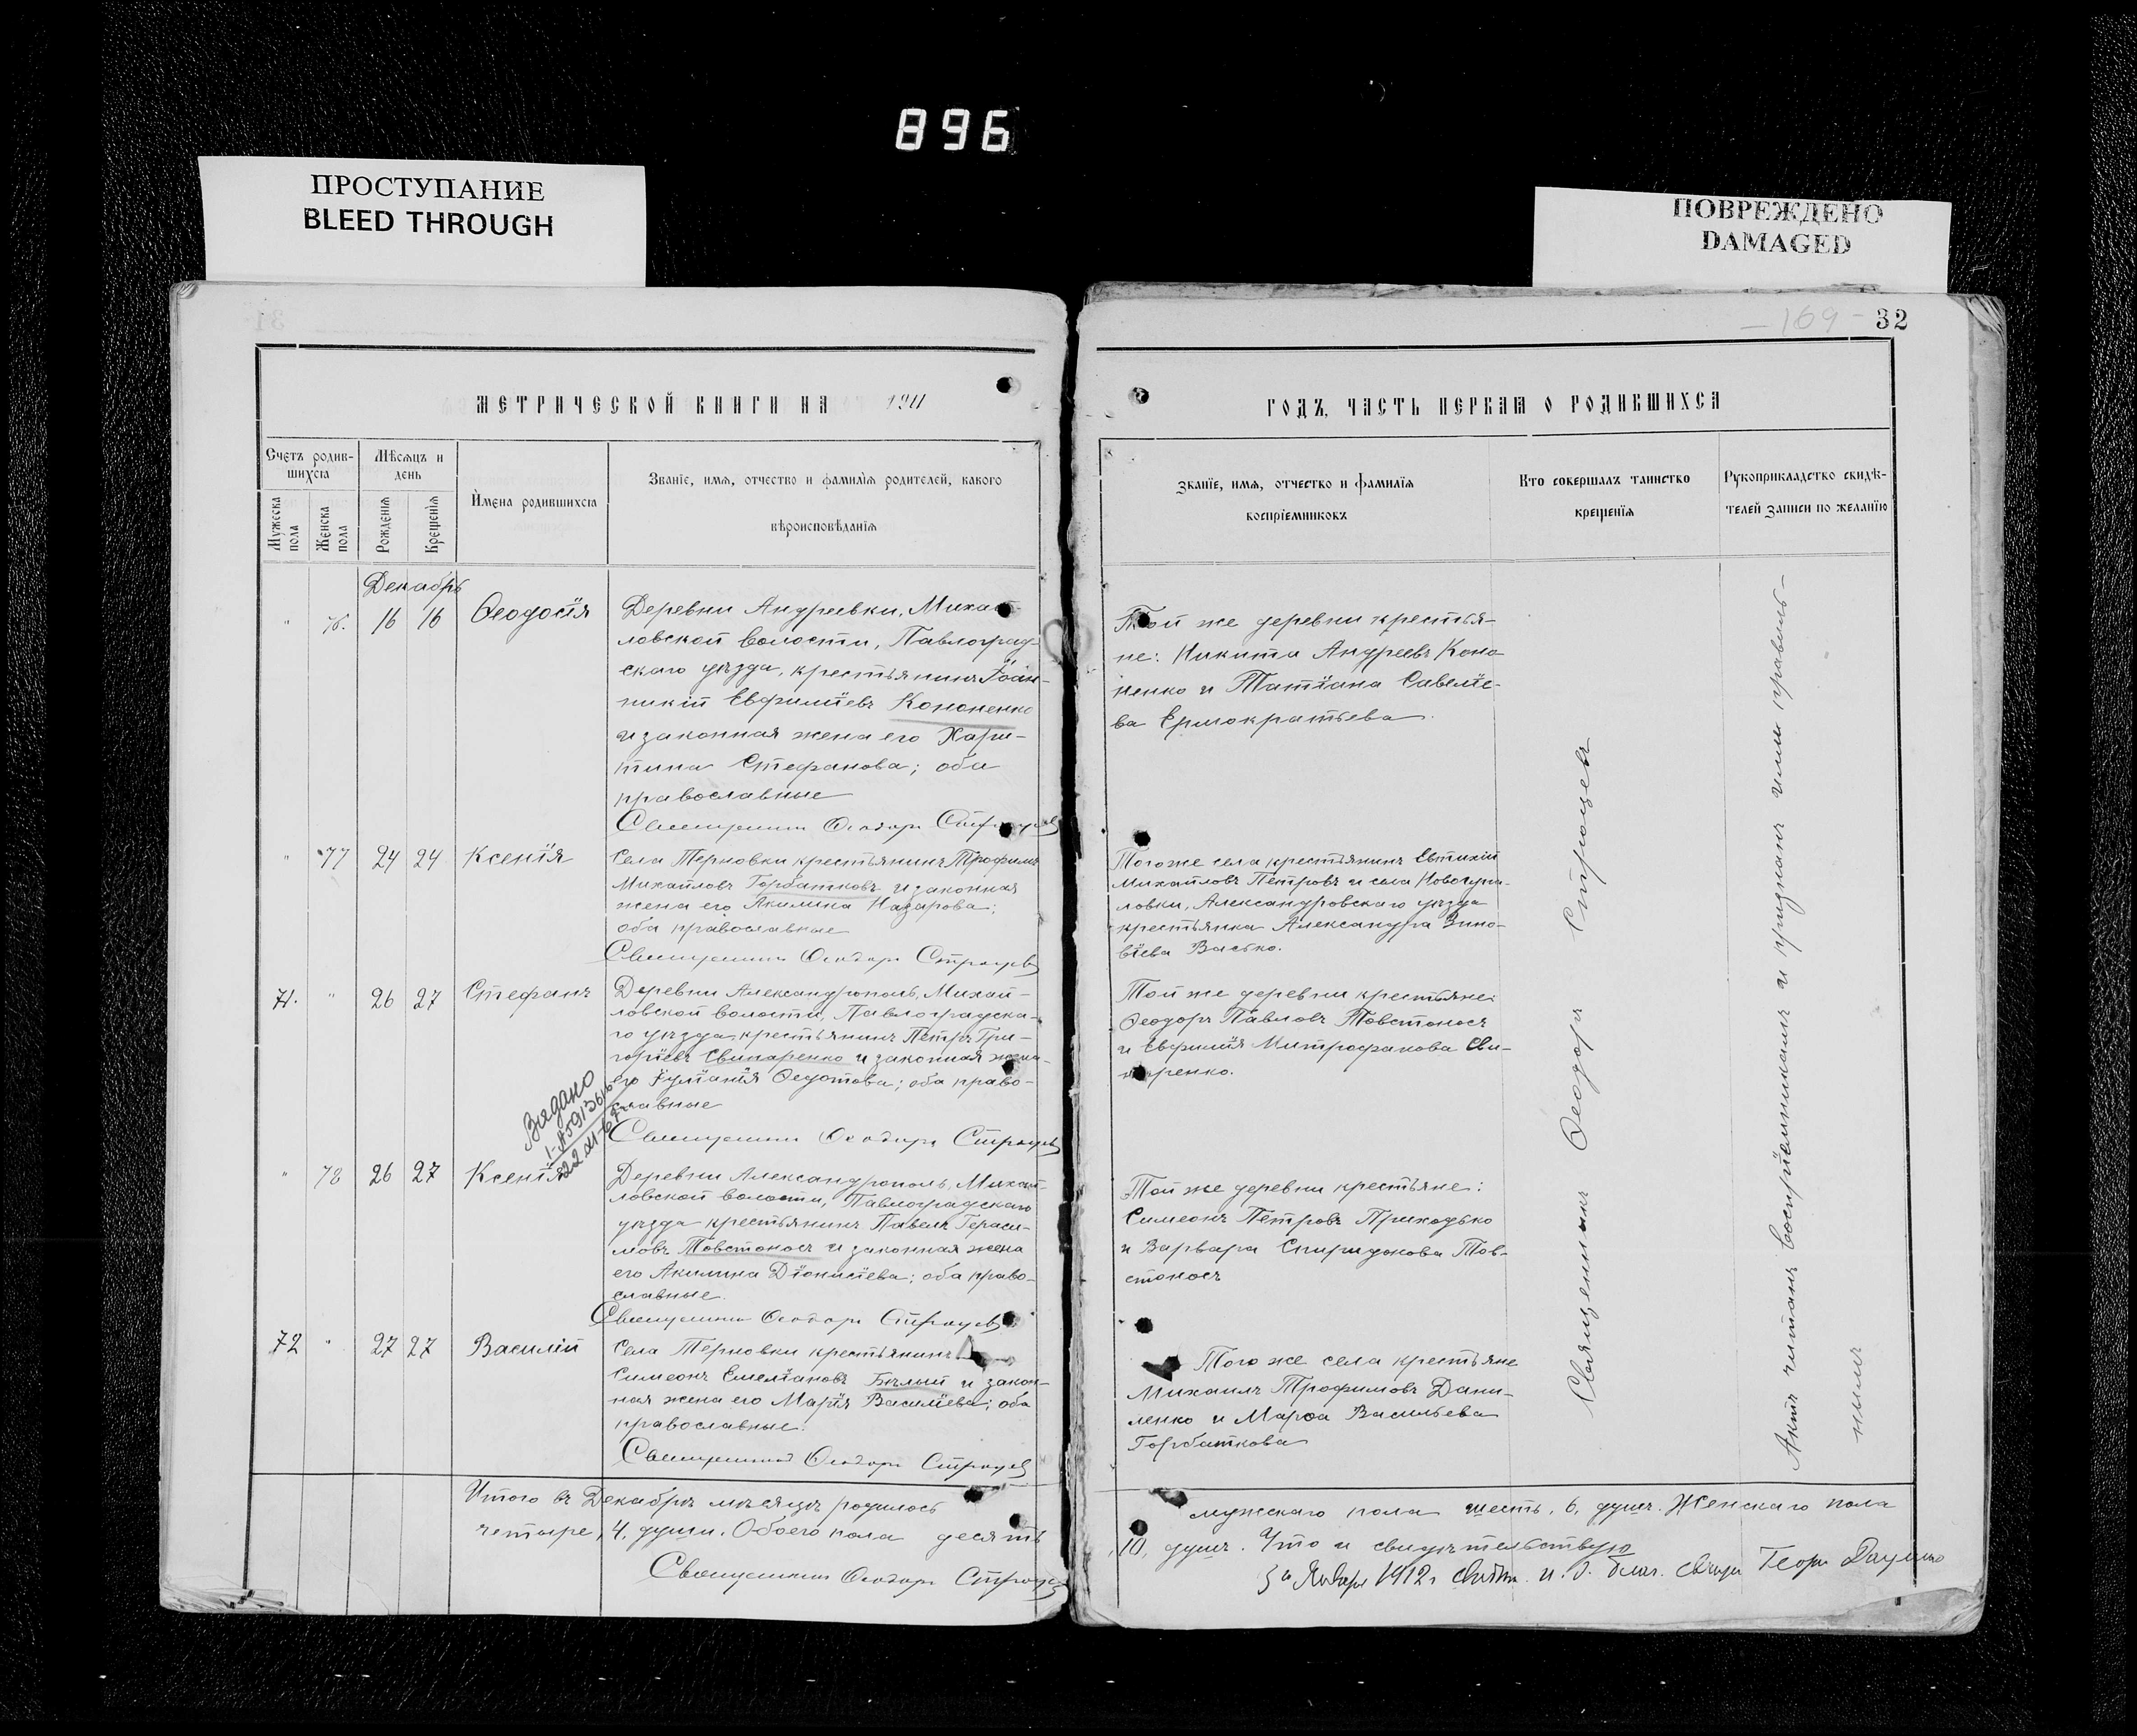 896
ПРОСТУПАНИЕ
BLEED THROUGH
ПОВРЕЖДЕНО
DAMAGED
— 169 — 32
МЕТРИЧЕСКОЙ КНИГИ НА 1911
ГОДЪ, ЧАСТЬ ПЕРВАЯ О РОДИВШИХСЯ
Счетъ родив-
шихся
Мѣсяцъ и
день
Мужеска пола
Женска пола
Рожденія
Крещенія
Имена родившихся
Званіе, имя, отчество и фамилія родителей, какого
вѣроисповѣданія
Званіе, имя, отчество и фамилія
воспріемниковъ
Кто совершалъ таинство
крещенія
Рукоприкладство свидѣ-
телей записи по желанію
Декабрь
" 76. 16 16 Ѳеодосія
Деревни Андреевки, Михай-
ловской волости, Павлоград-
скаго уѣзда, крестьянинъ Іоан-
никій Евфиміевъ Кононенко
и законная жена его Хари-
тина Стефанова; оба
православные
Священникъ Ѳеодоръ Строцев
Той же деревни крестья-
не: Никита Андреевъ Коно
ненко и Татіана Савеліе-
ва Ермократьева.
" 77 24 24 Ксенія
Села Терновки крестьянинъ Трофимъ
Михайловъ Горбатковъ и законная
жена его Акилина Назарова;
оба православные
Священникъ Ѳеодоръ Строцев
Того же села крестьянинъ Евтихій
Михайловъ Петровъ и села
ловки, Александровскаго уѣзда
крестьянка Александра Зино-
віева Васько.
71. " 26 27 Стефанъ
Деревни Александрополь, Михай-
ловской волости, Павлоградска-
го уѣзда крестьянинъ Петръ Гри-
горіевъ Свинаренко и законная жена
его Іуліанія Ѳедотова; оба право-
славные
Священникъ Ѳеодоръ Строцев
Той же деревни крестьяне:
Ѳеодоръ Павловъ Товстоносъ
и Евфимія Митрофанова Сви-
наренко.
Видано
" 78 26 27 Ксенія
Деревни Александрополь, Михай-
ловской волости, Павлоградскаго
уѣзда крестьянинъ Павелъ Гераси-
мовъ Товстоносъ и законная жена
его Акилина Діонисіева; оба право-
славные.
Священникъ Ѳеодоръ Строцев
Той же деревни крестьяне:
Симеонъ Петровъ Приходько
и Варвара Спиридонова Тов-
стоносъ
72 " 27 27 Василій
Села Терновки крестьянинъ
Симеонъ Емеліановъ Бѣлый и закон-
ная жена его Марія Василіева; оба
православные.
Священникъ Ѳеодоръ Строцев
Того же села крестьяне
Михаилъ Трофимовъ Дани-
ленко и Марѳа Васильева
Горбаткова
Священникъ Ѳеодоръ Строцевъ
Актъ читанъ воспріемникамъ и признанъ ими правиль-
нымъ
Итого въ Декабрѣ мѣсяцѣ родилось
мужскаго пола шесть, 6, душъ. Женскаго пола
четыре, 4, души. Обоего пола десять
10, душъ. Что и свидѣтельствую
Священникъ Ѳеодоръ Строцев
Января 1912 г.